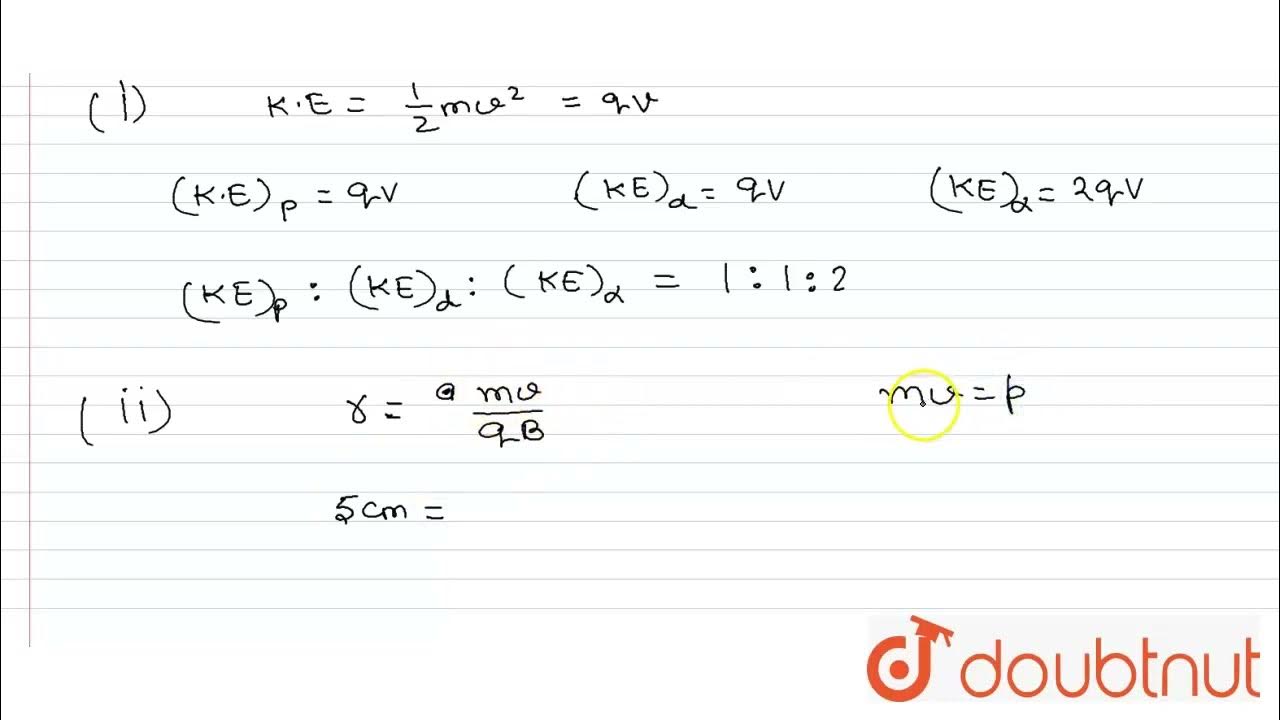 (i) K.E = 1/2 mv² = qV
(K.E)p = qV (KE)d = qV (KE)α = 2qV
(KE)p : (KE)d : (KE)α = 1 : 1 : 2
(ii) r = mv/qB mv = p
5cm =
doubtnut